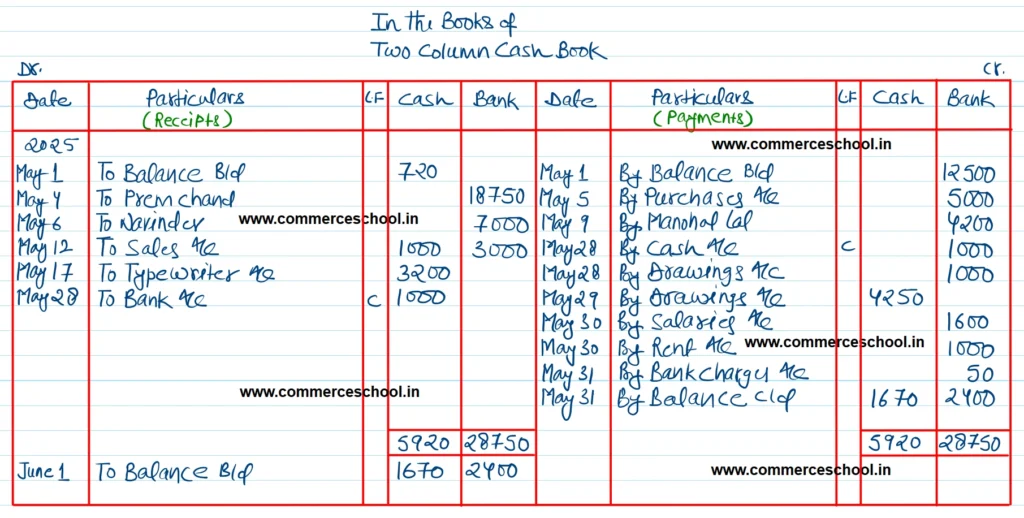 In the Books of
Two Column Cash Book
Dr. Cr.
Date Particulars LF Cash Bank Date Particulars LF Cash Bank
(Receipts) (Payments)
2025 www.commerceschool.in
May 1 To Balance B/d 720 May 1 By Balance B/d 12500
May 4 To Premchand 18750 May 5 By Purchases A/c 5000
May 6 To Narinder www.commerceschool.in 7000 May 9 By Manohar Lal 4200
May 12 To Sales A/c 1000 3000 May 28 By Cash A/c C 1000
May 17 To Typewriter A/c 3200 May 28 By Drawings A/c 1000
May 28 To Bank A/c C 1000 May 29 By Drawings A/c 4250
May 30 By Salaries A/c 1600
May 30 By Rent A/c www.commerceschool.in 1000
May 31 By Bank charges A/c 50
www.commerceschool.in May 31 By Balance c/d 1670 2400
5920 28750 5920 28750
June 1 To Balance B/d 1670 2400 www.commerceschool.in